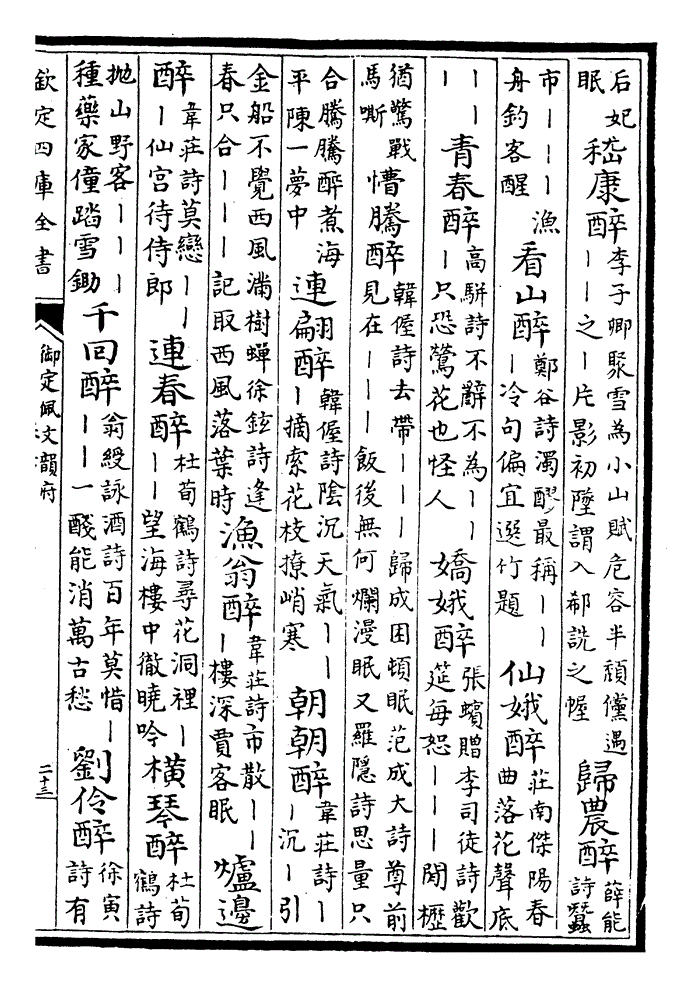 后妃眠嵇康醉李子卿聚雪為小山賦危容半頽儻遇——之—片影初墜謂入郗詵之幄歸農醉薛能詩蠶
市———漁舟釣客醒看山醉鄭谷詩濁醪最稱———冷句偏宜選竹題仙娥醉莊南傑陽春曲落花聲底
————青春醉高駢詩不辭不為———只恐鶯花也怪人嬌娥醉張蠙贈李司徒詩歡筵每恕———閒櫪
猶驚戰馬嘶懵騰醉韓偓詩去帶———歸成困頓眠范成大詩尊前見在———飯後無何爛漫眠又羅隱詩思量只
合騰騰醉煮海平陳一夢中連翩醉韓偓詩陰沉天氣———摘索花枝撩峭寒朝朝醉韋莊詩——沉—引
金船不覺西風滿樹蟬徐鉉詩逢春只合———記取西風落葉時漁翁醉韋莊詩市散———樓深賈客眠爐邊
醉韋莊詩莫戀———仙宮待侍郎連春醉杜荀鶴詩尋花洞裡———望海樓中徹曉吟橫琴醉杜荀鶴詩
拋山野客———種藥家僮踏雪鋤千回醉翁綬詠酒詩百年莫惜———一醆能消萬古愁劉伶醉徐寅詩有
欽定四庫全書
御定佩文韻府
二十三